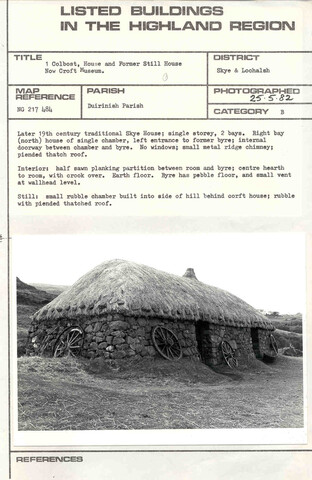 LISTED BUILDINGS
IN THE HIGHLAND REGION
TITLE
1 Colbost, House and Former Still House
Now Croft Museum.
DISTRICT
Skye & Lochalsh
MAP
REFERENCE
NG 217 484
PARISH
Duirinish Parish
PHOTOGRAPHED
25.5.82
CATEGORY B
Later 19th century traditional Skye House; single storey, 2 bays. Right bay
(north) house of single chamber, left entrance to former byre; internal
doorway between chamber and byre. No windows; small metal ridge chimney;
piended thatch roof.
Interior: half sawn planking partition between room and byre; centre hearth
to room, with crook over. Earth floor. Byre has pebble floor, and small vent
at wallhead level.
Still: small rubble chamber built into side of hill behind corft house; rubble
with piended thatched roof.
REFERENCES